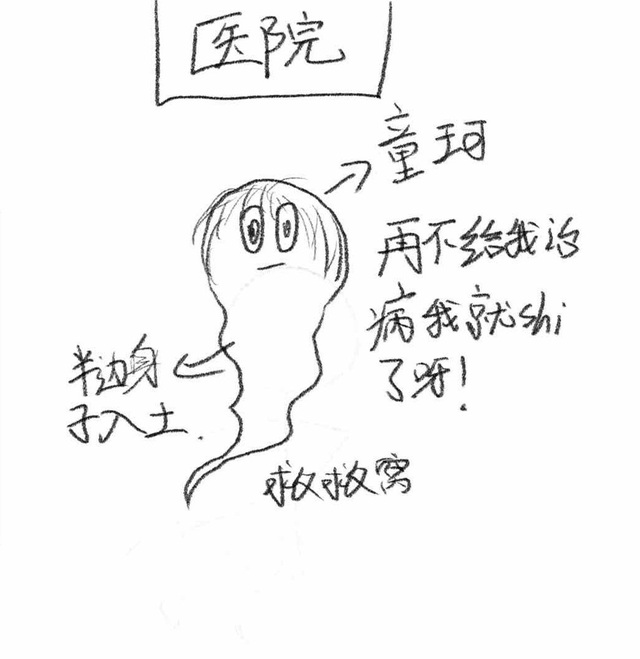 医院
童珂
再不给我治
病我就shi
了呀!
半边身
子入土.
救救窝